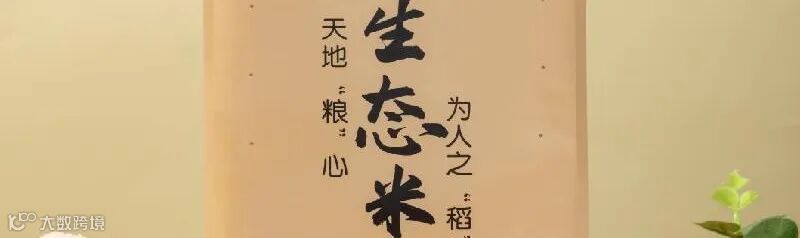 生态米
天地“粮”心
为人之“稻”
大数跨境